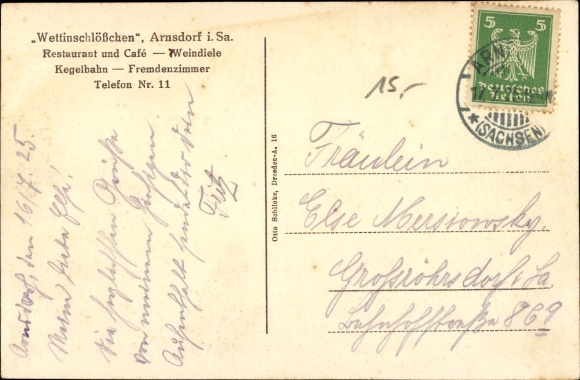 „Wettinschlößchen", Arnsdorf i. Sa.
Restaurant und Café — Weindiele
Kegelbahn — Fremdenzimmer
Telefon Nr. 11
Arnsdorf, den 16/7. 25.
Meine liebe Else!
Die herzlichsten Grüße
von meinem
Aufenthalt sendet Dir Dein
Fritz
Otto Schlicke, Dresden-A. 16
15,-
5 5
Deutsches
Reich
ARN
17
★(SACHSEN)
Fräulein
Else Mersiowsky.
Großröhrsdorf i. Sa.
Bahnhofstraße 869